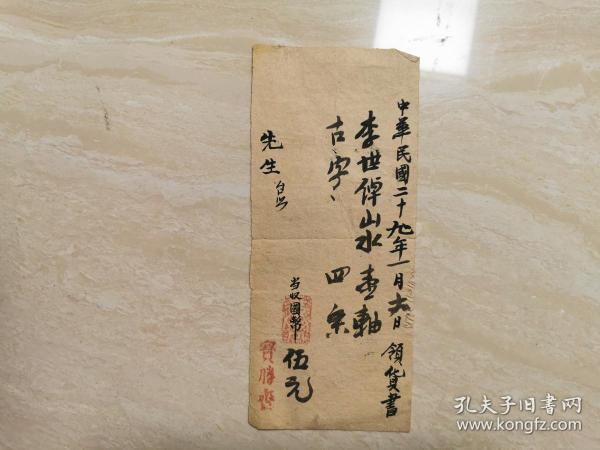 中華民國二十九年一月六日 領貨書
李世倬山水 壹軸
古字 四条
先生 台照
当收國幣 伍元
寶勝齋
孔夫子旧书网
www.kongfz.com